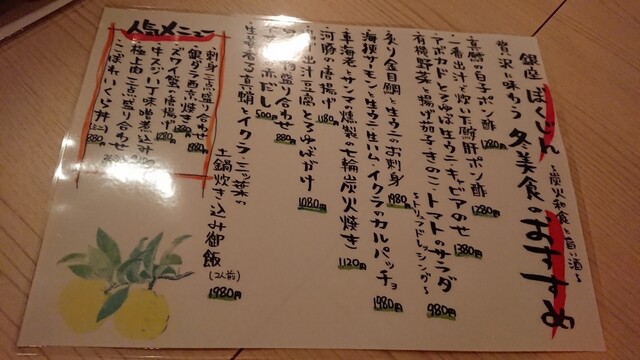 銀座 ぼくじん
〜炭火和食と旨い酒〜
贅沢に味わう 冬美食のおすすめ
京鱈の白子ポン酢 1280円
一番出汁で炊いた鮟肝ポン酢 1280円
アボカドととろゆば 生ウニ・キャビアのせ 1380円
有機野菜と揚げ茄子・きのこ・トマトのサラダ 980円
〜トリュフドレッシング〜
炙り金目鯛と生ウニのお刺身 1980円
海狸サーモンと生ウニ・生ハム・イクラのカルパッチョ 1980円
車海老とサンマの燻製の七輪炭火焼き 1120円
河豚の唐揚げ 1180円
出汁豆腐とろゆばがけ 1080円
盛り合わせ 880円
赤だし 500円
イクラ・三ツ葉の
土鍋炊き込み御飯 (2人前) 1980円
人気メニュー
刺身三点盛り合わせ
銀ダラ西京焼き 880円
ズワイ蟹の唐揚げ
牛スジ八丁味噌煮込み
極上肉三点盛り合わせ
こぼれいくら丼(ミニ)